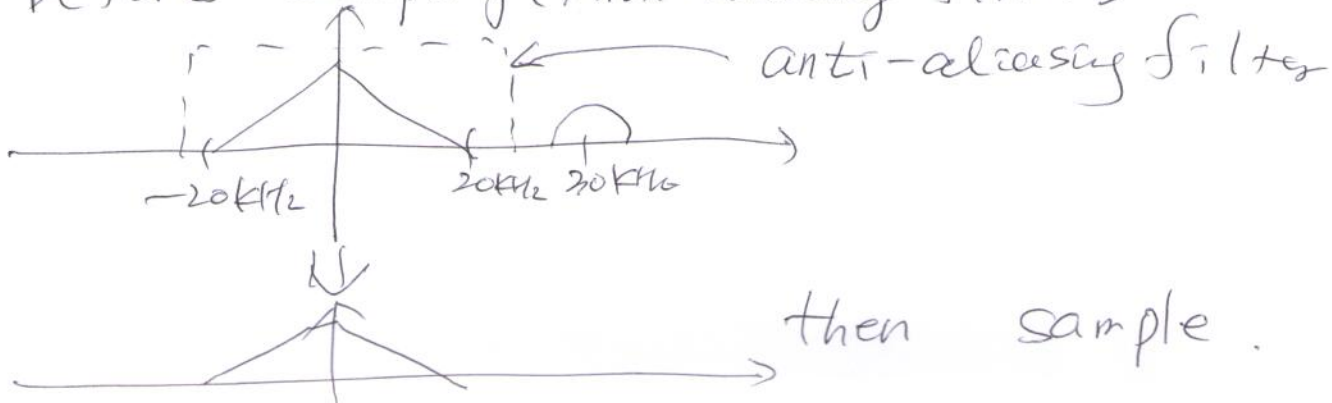 anti-aliasing filter
-20kHz 20kHz 30kHz
then sample.